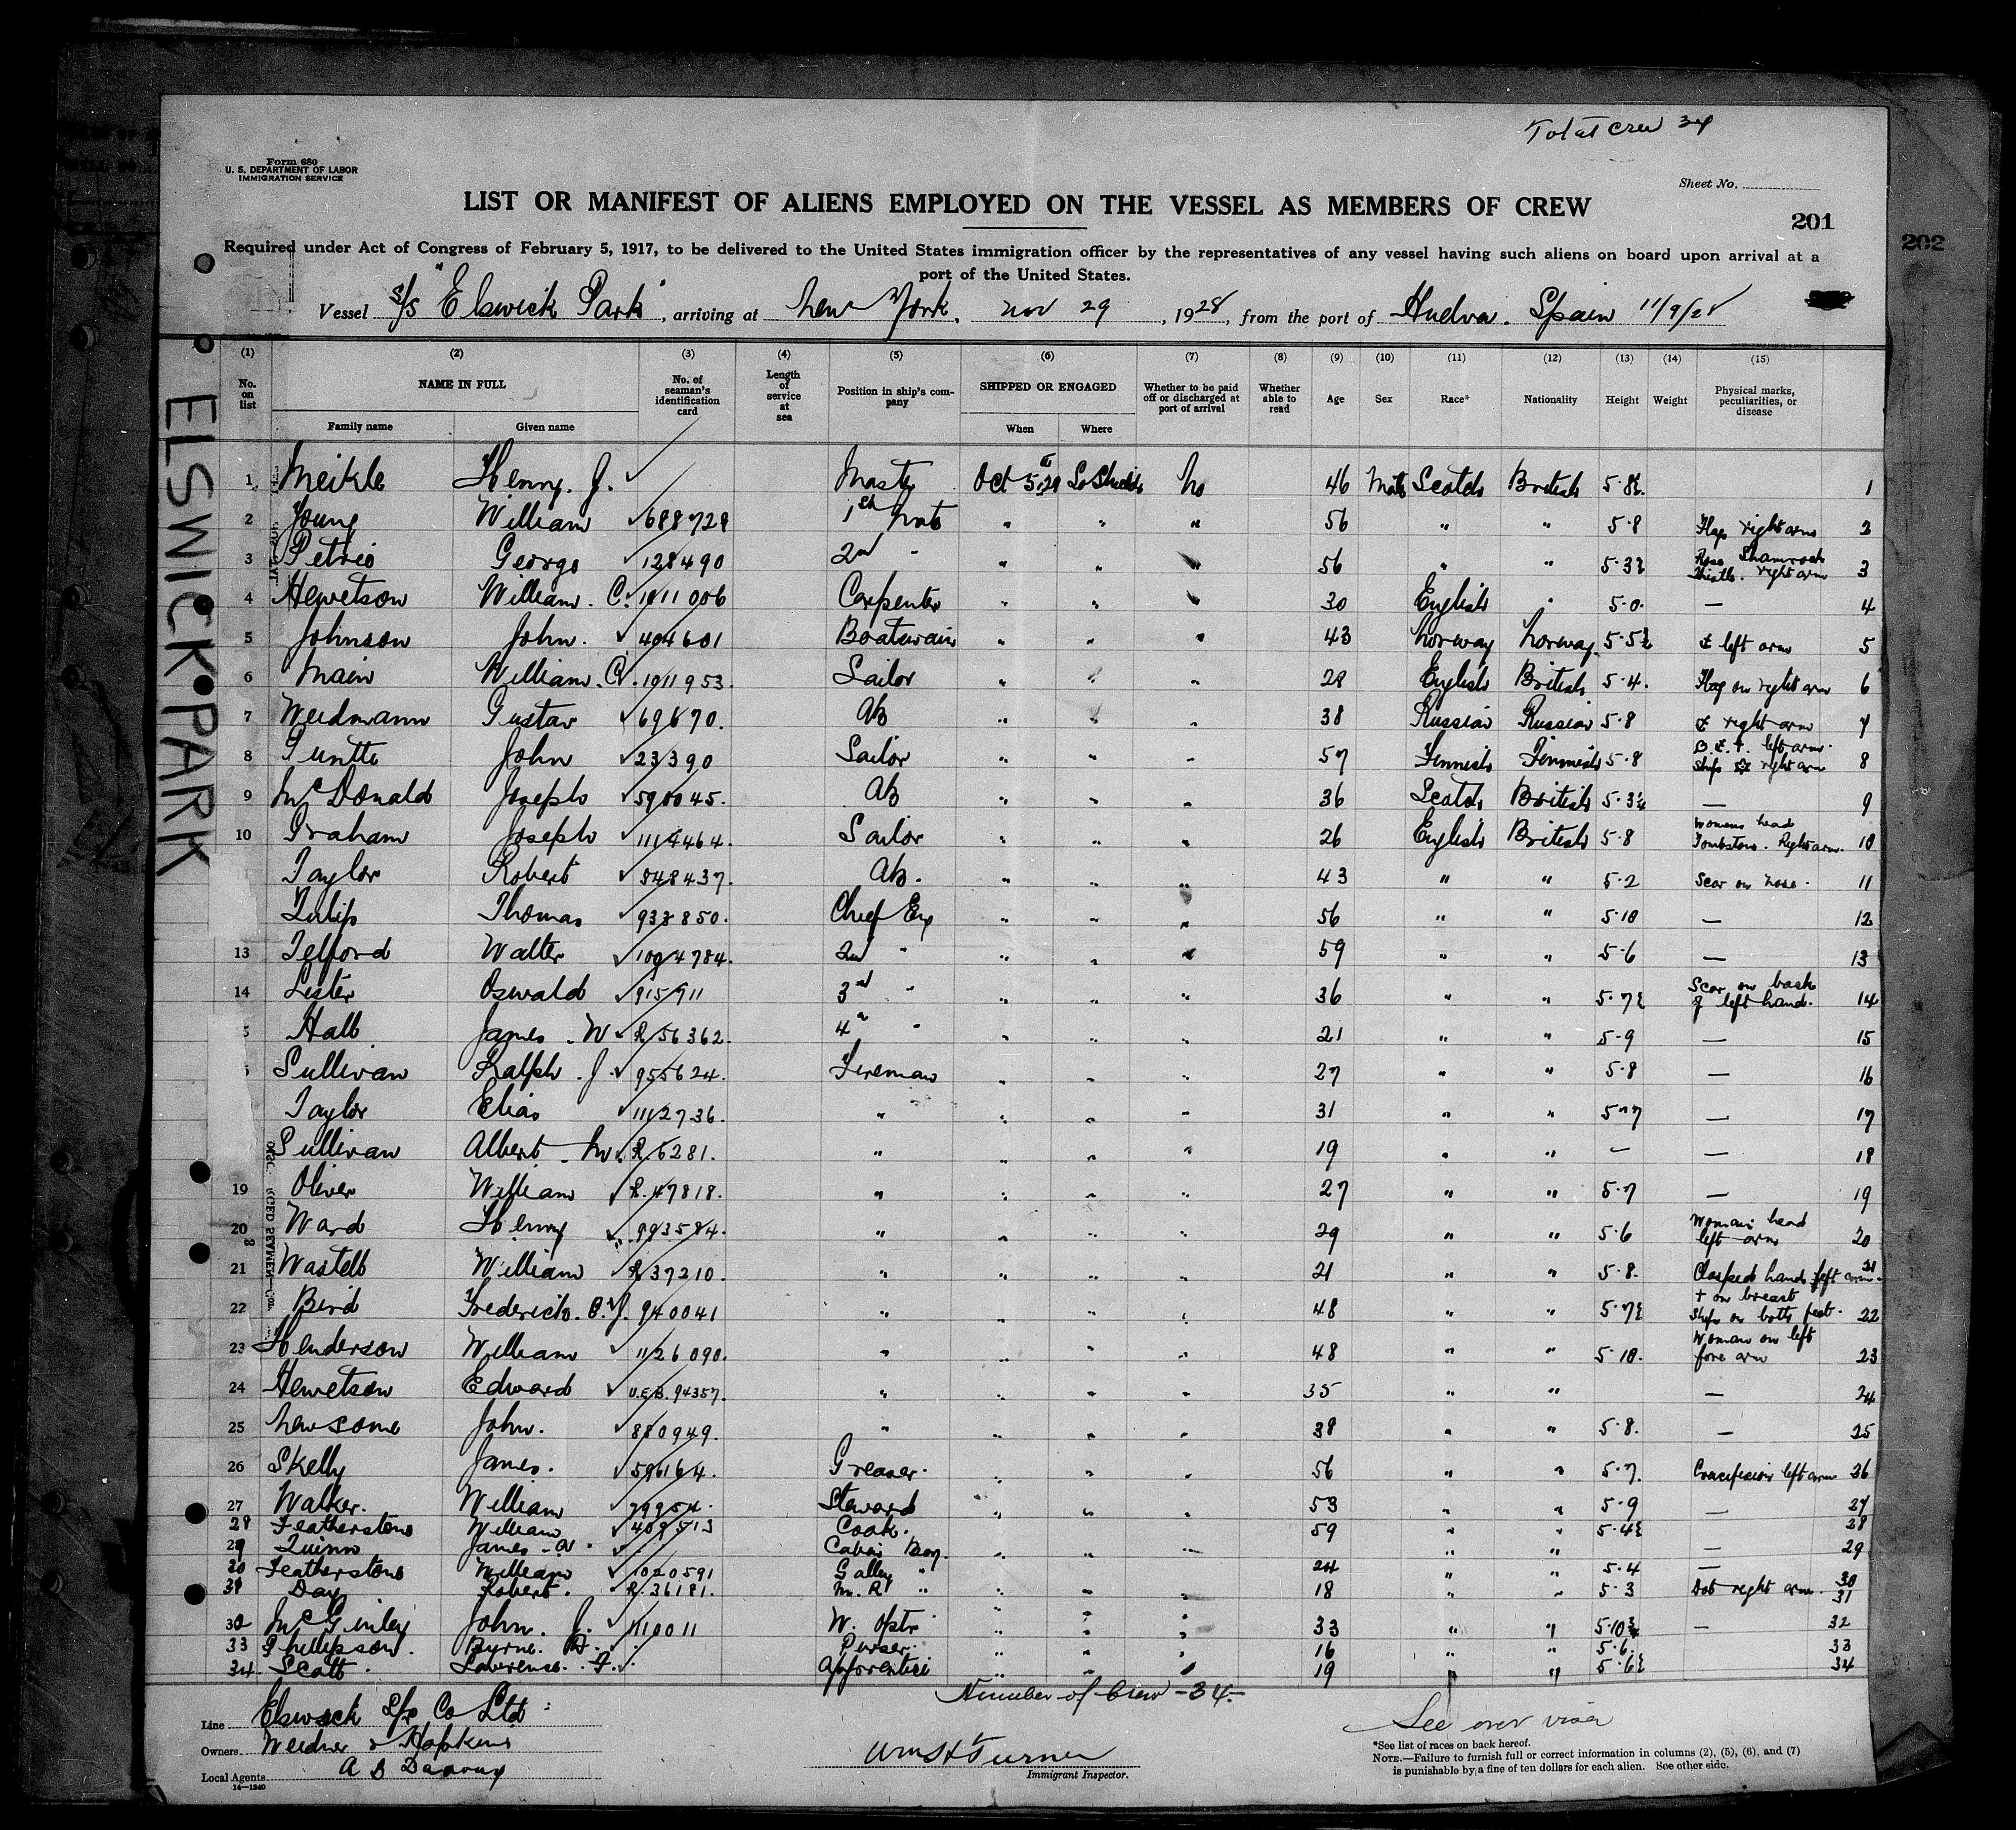 Total Crew 34
Form 680
U. S. DEPARTMENT OF LABOR
IMMIGRATION SERVICE
Sheet No.
LIST OR MANIFEST OF ALIENS EMPLOYED ON THE VESSEL AS MEMBERS OF CREW
201
202
Required under Act of Congress of February 5, 1917, to be delivered to the United States immigration officer by the representatives of any vessel having such aliens on board upon arrival at a
port of the United States.
Vessel S/S "Elswick Park", arriving at New York, Nov 29, 1928, from the port of Huelva. Spain 11/9/28
ELSWICK PARK
(1) (2) (3) (4) (5) (6) (7) (8) (9) (10) (11) (12) (13) (14) (15)
No. on list NAME IN FULL Family name Given name No. of seaman's identification card Length of service at sea Position in ship's company SHIPPED OR ENGAGED When Where Whether to be paid off or discharged at port of arrival Whether able to read Age Sex Race* Nationality Height Weight Physical marks, peculiarities, or disease
1 Meikle Henry. J. ✓ Master Oct 5 28 So Shields No 46 Male Scotch British 5-8½. 1
2 Young William ✓ 688728 1st Mate " " " 56 " " 5-8 Flag right arm 2
3 Petrie George ✓ 128490 2nd " " " " 56 " " 5-3½ Rose Shamrock Thistle. right arm 3
4 Hewetson William. C. 1011006 Carpenter " " " 30 English " 5-0. — 4
5 Johnson John. ✓ 404601 Boatswain " " " 43 Norway Norway 5-5½ left arm 5
6 Main William. C. 1011953. Sailor " " 28 English British 5-4. Flag on right arm 6
7 Weidmann Gustav ✓ 69670. AB " " " 38 Russian Russian 5-8 right arm 7
8 Puntte John ✓ 23390 Sailor " " " 57 Finnish Finnish 5-8 left arm. Ship ☆ right arm 8
9 McDonald Joseph ✓ 590045. AB " " " 36 Scotch British 5-3¼ — 9
10 Graham Joseph ✓ 1114464. Sailor " " " 26 English British 5-8 Womans head Tombstone. Right arm. 10
Taylor Robert ✓ 548437. AB. " " " 43 " " 5-2 Scar on nose. 11
Tulip Thomas ✓ 933850. Chief Eng " " " 56 " " 5-10 — 12
13 Telford Walter ✓ 1004784. 2nd " " " " 59 " " 5-6 — 13
14 Lester Oswald ✓ 915911 3rd " " " " 36 " " 5-7½ Scar on back of left hand. 14
5 Hall James. W ✓ R 56362. 4th " " " " 21 " " 5-9 — 15
Sullivan Ralph. J. ✓ 955624. Fireman " " " 27 " " 5-8 — 16
Taylor Elias ✓ 1112736. " " " " 31 " " 5-7 — 17
Sullivan Albert. M. ✓ R. 6281. " " " " 19 " " — — 18
19 Oliver William ✓ R. 47818. " " " " 27 " " 5-7 — 19
20 Ward Henry ✓ 993584. " " " " 29 " " 5-6 Womans head left arm 20
21 Wastell William ✓ R 37210. " " " " 21 " " 5-8. Clasped hands left arm. 21
22 Bird Frederick. ✓ 940041 " " " " 48 " " 5-7½ + on breast Ships on both feet. 22
23 Henderson William ✓ 1126090. " " " " 48 " " 5-10. Woman on left fore arm 23
24 Hewetson Edward ✓ 94357. " " " " 35 " " — 24
25 Newsome John. ✓ 880949. " " " " 38 " " 5-8. — 25
26 Skelly James. ✓ 596164. Greaser. " " " 56 " " 5-7. Crucifixion left arm 26
27 Walker. William ✓ 79954. Steward " " " 53 " " 5-9 — 27
28 Featherstone William ✓ 409513 Cook. 59 " " 5-4½ 28
29 Quinn James ✓ Cabin Boy. " " " " " — 29
30 Featherstone William ✓ 1020591 Galley " 24 " " 5-4 — 30
31 Day Robert. ✓ R. 36181. M. R " " " " 18 " " 5-3 Dot right arm. 31
32 McGinley John. J. ✓ 1110011 W. Optr " " " 33 " " 5-10¾ — 32
33 Phillipson. Byrne. ✓ Purser. " " " 16 " " 5-6. 33
34. Scott. Lawrence. F. ✓ Apprentice " " " 19 " " 5-6½ 34
Number of Crew - 34.-
Line Elswick S/S Co Ltd
Owners Weidner & Hopkins
Local Agents
14—1240
Wm H Turner
Immigrant Inspector.
See over visa
*See list of races on back hereof.
NOTE.—Failure to furnish full or correct information in columns (2), (5), (6), and (7)
is punishable by a fine of ten dollars for each alien. See other side.